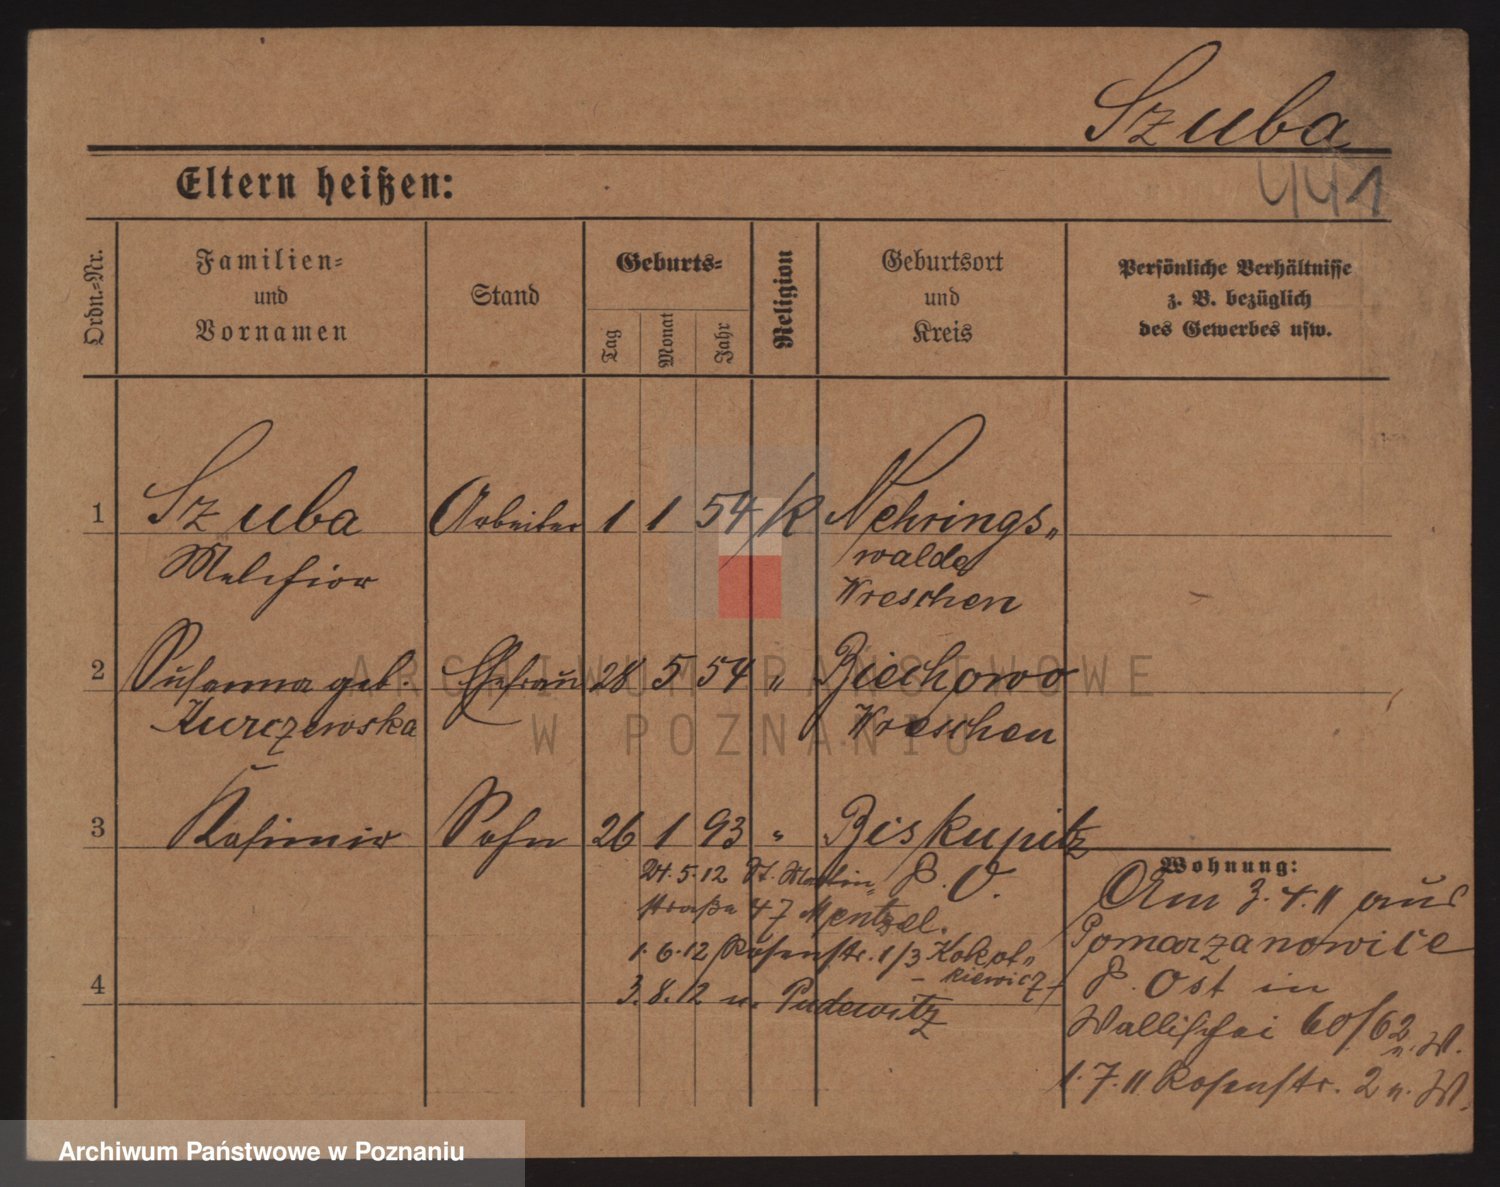 Szuba
441
Eltern heißen:
Ordn.-Nr.
Familien-
und
Vornamen
Stand
Geburts-
Tag
Monat
Jahr
Religion
Geburtsort
und
Kreis
Persönliche Verhältnisse
z. B. bezüglich
des Gewerbes usw.
1 Szuba Arbeiter 1 1 54 K Nehrings-
Melchior walde
Wreschen
2 Susanna geb Ehefrau 28 5 54 " Biechowo
Kurczewska Wreschen
3 Kasimir Sohn 26 1 93 " Biskupitz
P. O.
24.5.12 St. Martin-
straße 47 Mentzel.
1.6.12 Rosenstr. 1/3 Kokot-
kiewicz
4 3.8.12 n. Pudewitz
Wohnung:
Am 3.4.11 aus
Pomarzanowice
P. Ost in
Wallischei 60/62 n. W.
1.7.11 Rosenstr. 2 n. W.
ARCHIWUM PAŃSTWOWE
W POZNANIU
Archiwum Państwowe w Poznaniu